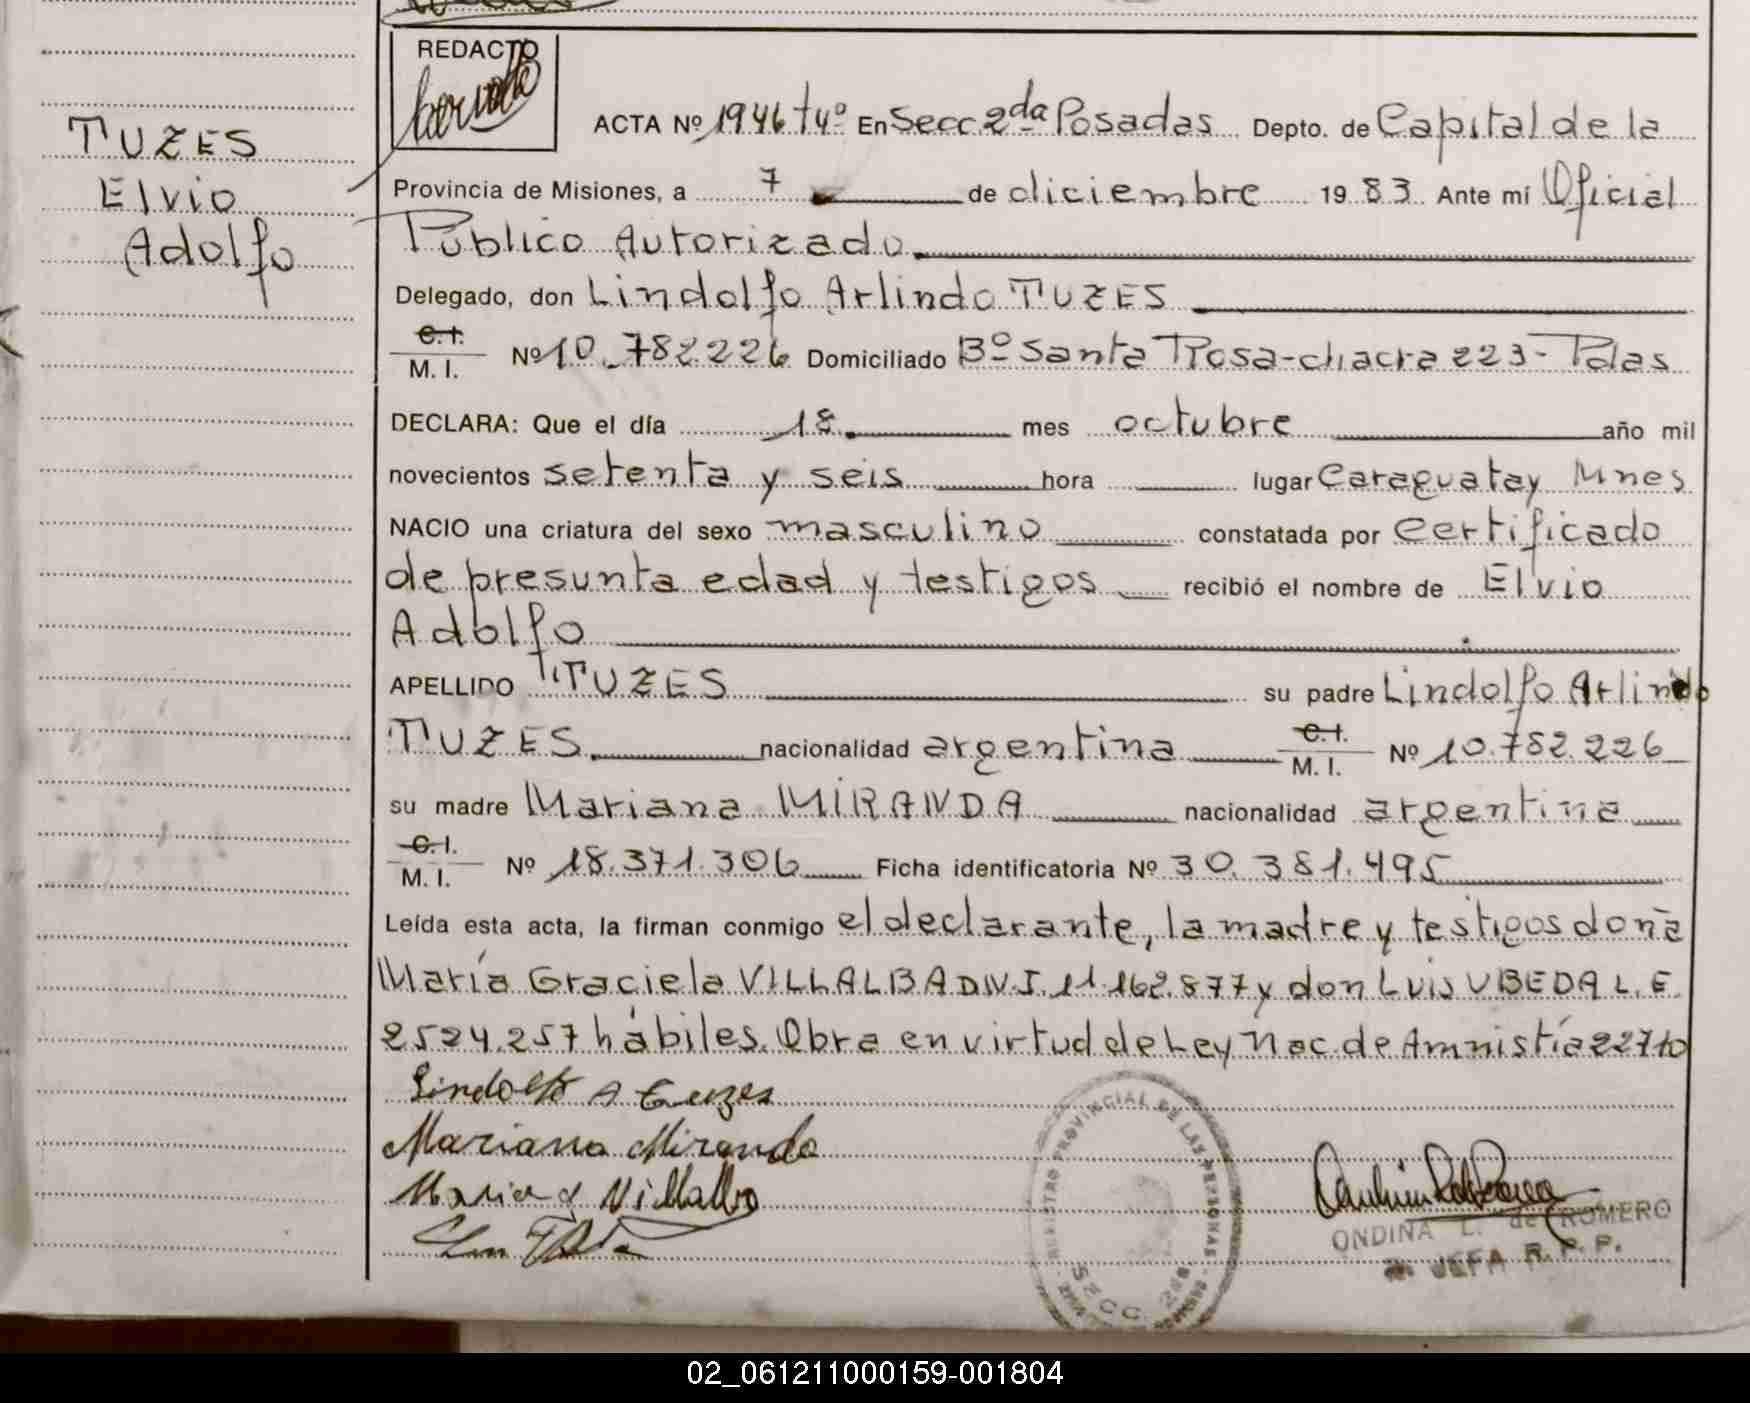 TUZES
Elvio
Adolfo
REDACTO
ACTA Nº 1946 tº4º En Secc 2da Posadas Depto. de Capital de la
Provincia de Misiones, a 7 de diciembre 19 83 Ante mí Oficial
Público Autorizado
Delegado, don Lindolfo Arlindo TUZES
C.I.
M. I. Nº 10.782.226 Domiciliado Bº Santa Rosa-chacra 223- Pdas
DECLARA: Que el día 18 mes octubre año mil
novecientos setenta y seis hora lugar Caraguatay Mnes
NACIO una criatura del sexo masculino constatada por certificado
de presunta edad y testigos recibió el nombre de Elvio
Adolfo
APELLIDO TUZES su padre Lindolfo Arlindo
TUZES nacionalidad argentina C.I. M. I. Nº 10.782.226
su madre Mariana MIRANDA nacionalidad argentina
C.I.
M. I. Nº 18.371.306 Ficha identificatoria Nº 30.381.495
Leída esta acta, la firman conmigo el declarante, la madre y testigos doña
María Graciela VILLALBA DN.I. 11.162.877 y don Luis UBEDA L.E.
2524.257 hábiles. Obra en virtud de Ley Nac. de Amnistía 22710
Lindolfo A Tuzes
Mariana Miranda
Maria G Villalba
REGISTRO PROVINCIAL DE LAS PERSONAS
SECC. 2da
ONDINA L. de ROMERO
JEFA R.P.P.
02_061211000159-001804